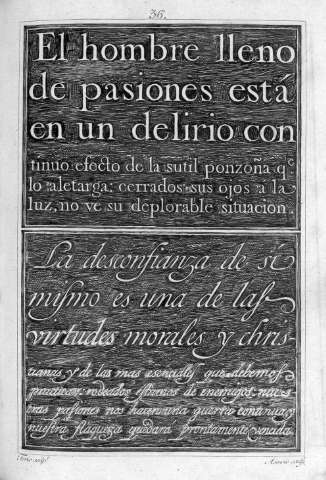 36.
El hombre lleno
de pasiones está
en un delirio con
tinuo efecto de la sutil ponzoña q.e
lo aletarga: cerrados sus ojos a la
luz, no ve su deplorable situacion.
La desconfianza de sí
mismo es una de las
virtudes morales y chris-
tianas, y de las mas esenciales que debemos
practicar: rodeados estamos de enemigos: nues
tras pasiones nos hacen una guerra continua, y
nuestra flaqueza quedara prontamente vencida.